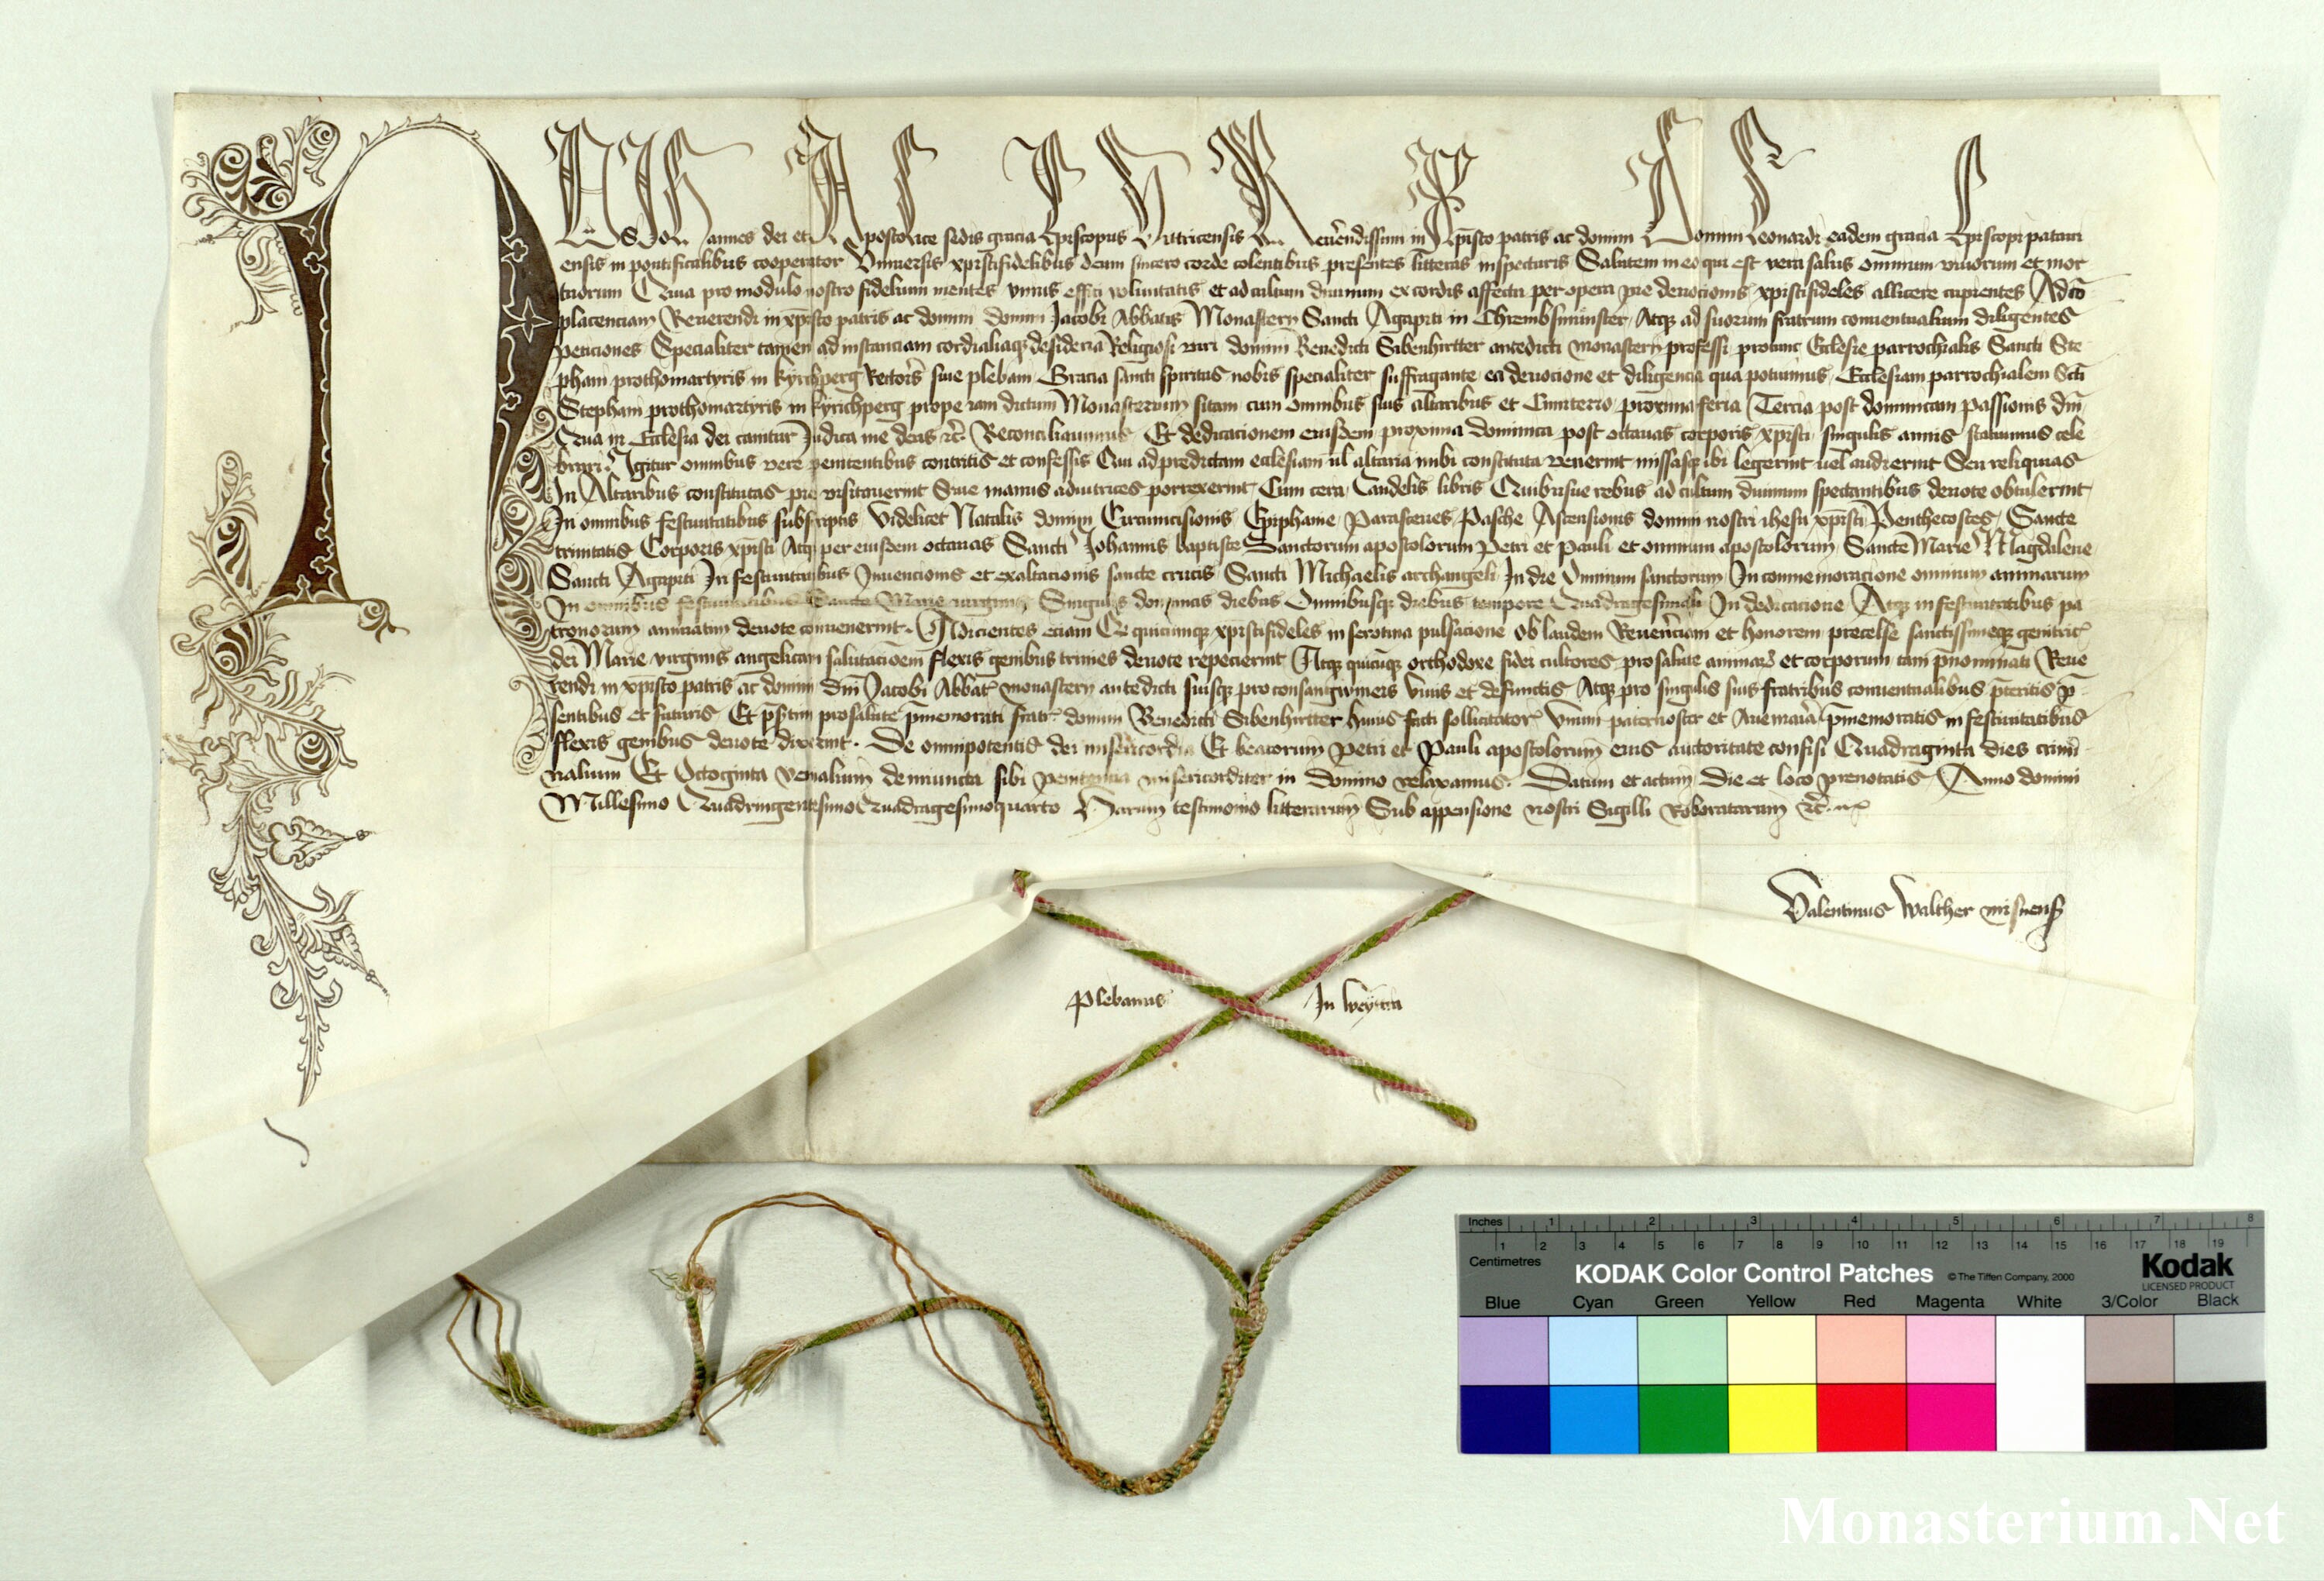 Nos Johannes dei et Apostolice sedis gracia Episcopus Victricensis Reverendissimi in Xpristo patris ac domini Domini Leonardi eadem gracia Episcopi patavi
ensis in pontificalibus cooperator Universis xpristifidelibus deum sincero corde colentibus presentes litteras inspecturis Salutem in eo qui est vera salus omnium vivorum et mor
tuorum Qua pro modulo nostro fidelium mentes unius effici voluntatis et ad cultum divinum ex cordis affectu per opera pie devocionis xpristifideles allicere cupientes Ad co
placenciam Reverendi in xpristo patris ac domini domini Jacobi Abbatis Monasterij Sancti Agapiti in Chrembsmunster Atq ad suorum fratrum conventualium diligentes
peticiones Specialiter tamen ad instanciam cordialiaq desideria Religiosi viri domini Benedicti Sibenhirtter antedicti monasterij professi protunc Ecclesie parrochialis Sancti Ste
phani prothomartyris in kyrchperg Rectoris sive plebani Gracia sancti spiritus nobis specialiter suffragante ea devocione et diligencia qua potuimus Ecclesiam parrochialem Scti
Stephani prothomartyris in kyrichperg prope iam dictum Monasterium sitam cum omnibus suis altaribus et Cimiterio proxima feria Tercia post dominicam passionis dni
Qua in Ecclesia dei cantur Judica me deus rc Reconciliavimus Et dedicacionem eiusdem proxima dominica post octavas corporis xpristi singulis annis statuimus cele
brari Igitur omnibus vere penitentibus contritis et confessis Qui ad predictam ecclesiam ul altaria inibi constituta venerint missasq ibi legerint vel audierint Seu reliquias
In Altaribus constitutas pie visitaverint Sive manus adiutrices porrexerint Cum cera Candelis libris Quibusve rebus ad cultum divinum spectantibus devote obtulerint
In omnibus festivitatibus subscriptis Videlicet Natalis domini Circumcisionis Epiphanie Parasceves Pasche Ascensionis domini nostri ihesu xpristi Penthecostes Sancte
trinitatis Corporis xpristi Atq per eiusdem octavas Sancti Johannis baptiste Sanctorum apostolorum Petri et Pauli et omnium apostolorum Sancte Marie Magdalene
Sancti Agapiti In festivitatibus Invencionis et exaltacionis sancte crucis Sancti Michaelis archangeli In die Omnium sanctorum In commemoracione omnium animarum
In omnibus festivitatibus Sancte Marie virginis Singulis dominicis diebus Omnibusq diebus tempore Quadragesimali In dedicacione Atq in festivitatibus pa
tronorum annuatim devote convenerint Adicientes eciam Et quicumq xpristifideles in serotina pulsacione ob laudem Reverenciam et honorem precelse sanctissimeq genitric
dei Marie virginis angelicam salutacioem flexis genibus trinies devote repecierint Atq quicuq orthodoxe fidei cultores pro salute animar et corporum tam pnominati Reve
rendi in xpristo patris ac domini dni Jacobi Abbat monasterij antedicti suisq pro consangwineis vivis et defunctis Atq pro singulis suis fratribus conventualibus pteritis p
sentibus et futuris Et pstim pro salute pmemorati fratr domini Benedicti Sibenhirtter huius facti sollicitator Unum paternoster et Ave maria pmemoratis in festivitatibus
flexis genibus devote dixerint De omnipotentis dei misericordia Et beatorum Petri et Pauli apostolorum eius autoritate confisi Quadraginta dies crimi
nalium Et Octoginta venialium de iniuncta sibi penitencia misericorditer in domino relaxamus Datum et actum Die et loco prenotatis Anno domini
Millesimo Quadringentesimo Quadragesimoquarto Harum testimonio litterarum Sub appensione nostri Sigilli Roboratarum rc
Valentinus Walther misnens
Plebanus In
Inches 1 2 3 4 5 6 7 8
1 2 3 4 5 6 7 8 9 10 11 12 13 14 15 16 17 18 19
Centimetres
KODAK Color Control Patches © The Tiffen Company, 2000 Kodak
LICENSED PRODUCT
Blue Cyan Green Yellow Red Magenta White 3/Color Black
Monasterium.Net